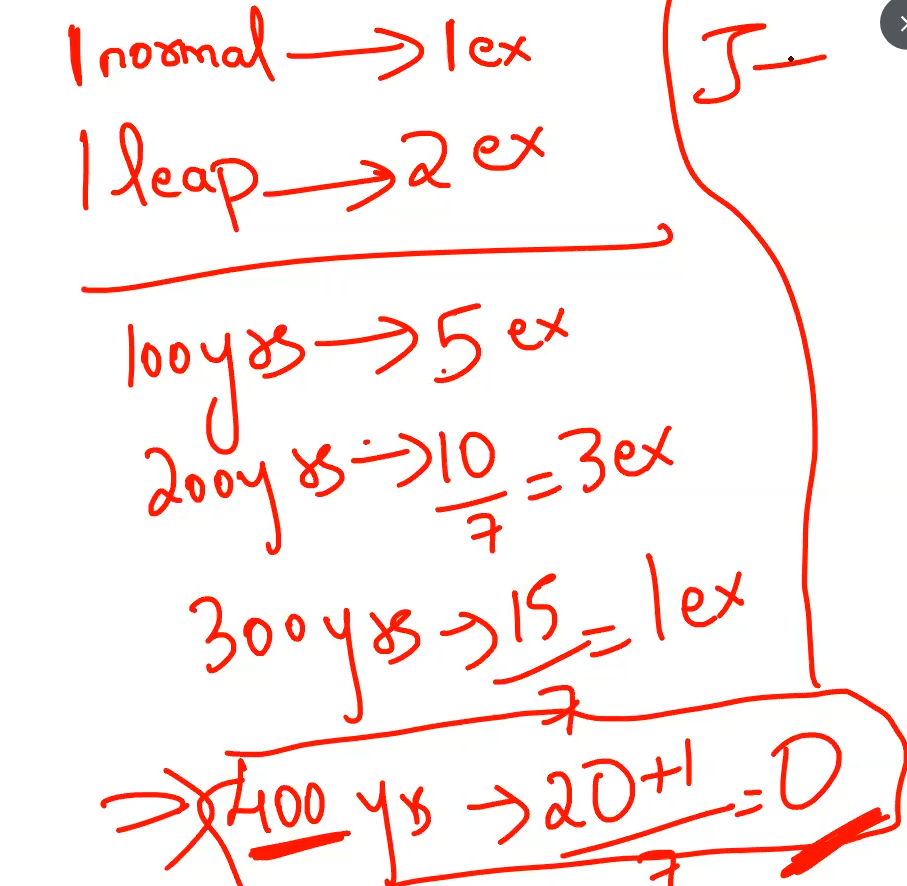 1 normal → 1 ex
J —
1 leap → 2 ex
100 yrs → 5 ex
200 yrs → 10/7 = 3 ex
300 yrs → 15/7 = 1 ex
⇒ 400 yrs → 20+1/7 = 0